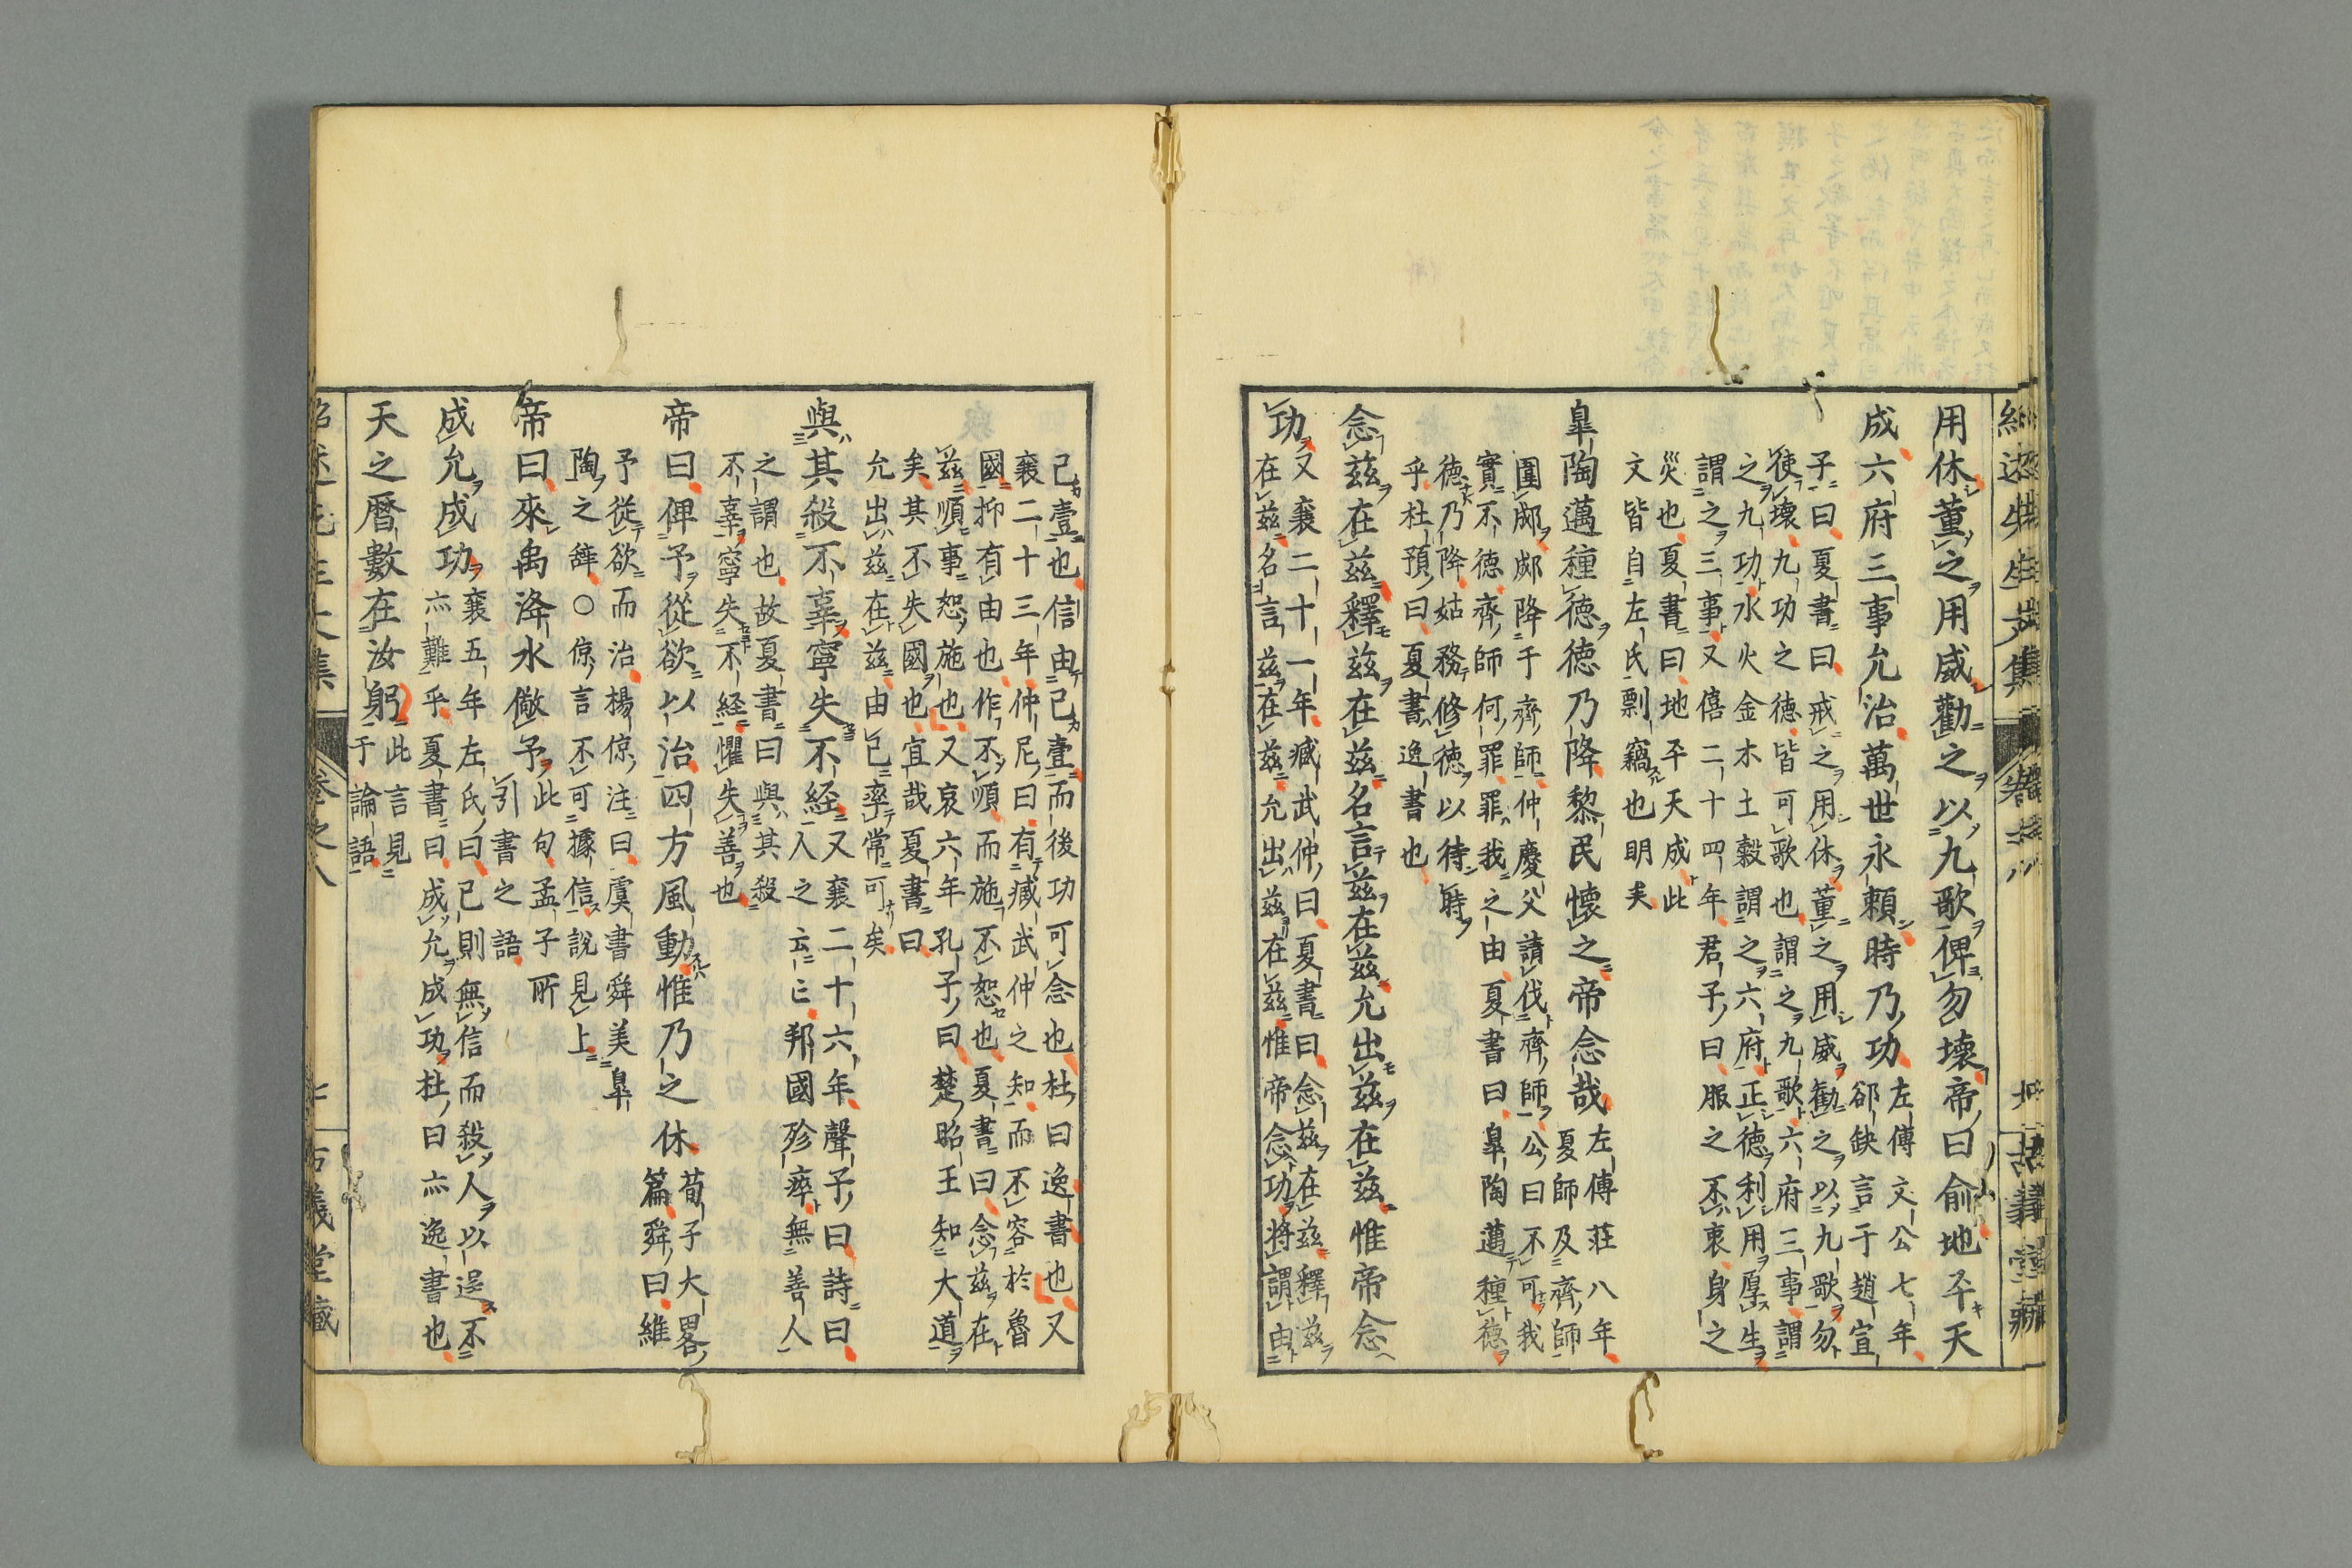 用休董之用威勸之以九歌俾勿壞帝曰俞地平天
成六府三事允治萬世永賴時乃功
左傳文公七年
郤缺言于趙宣
子曰夏書曰戒之用休董之用威勸之以九歌勿
使壞九功之德皆可歌也謂之九歌六府三事謂
之九功水火金木土穀謂之六府正德利用厚生
謂之三事又僖二十四年君子曰服之不衷身之
災也夏書曰地平天成此
文皆自左氏剽竊也明矣
皐陶邁種德德乃降黎民懷之帝念哉
左傳莊八年
夏師及齊師
圍郕郕降于齊師仲慶父請伐齊師公曰不可我
實不德齊師何罪罪我之由夏書曰皐陶邁種德
德乃降姑務修德以待時
乎杜預曰夏書逸書也
念茲在茲釋茲在茲名言茲在茲允出茲在茲惟帝念
功
又襄二十一年臧武仲曰夏書曰念茲在茲釋茲
在茲名言茲在茲允出茲在茲惟帝念功將謂由
己壹也信由己壹而後功可念也杜曰逸書也又
襄二十三年仲尼曰有臧武仲之知而不容於魯
國抑有由也作不順而施不恕也夏書曰念茲在
茲順事恕施也又哀六年孔子曰楚昭王知大道
矣其不失國也宜哉夏書曰
允出茲在茲由已率常可矣
與其殺不辜寧失不經
又襄二十六年聲子曰詩曰
人之云亡邦國殄瘁無善人
之謂也故夏書曰與其殺
不辜寧失不經懼失善也
帝曰俾予從欲以治四方風動惟乃之休
荀子大畧
篇舜曰維
予從欲而治楊倞注曰虞書舜美皐
陶之辭○倞言不可據信說見上
帝曰來禹洚水儆予
此句孟子所
引書之語
成允成功
襄五年左氏曰已則無信而殺人以逞不
亦難乎夏書曰成允成功杜曰亦逸書也
天之曆數在汝躬
此言見
于論語
卷之八
古義堂藏